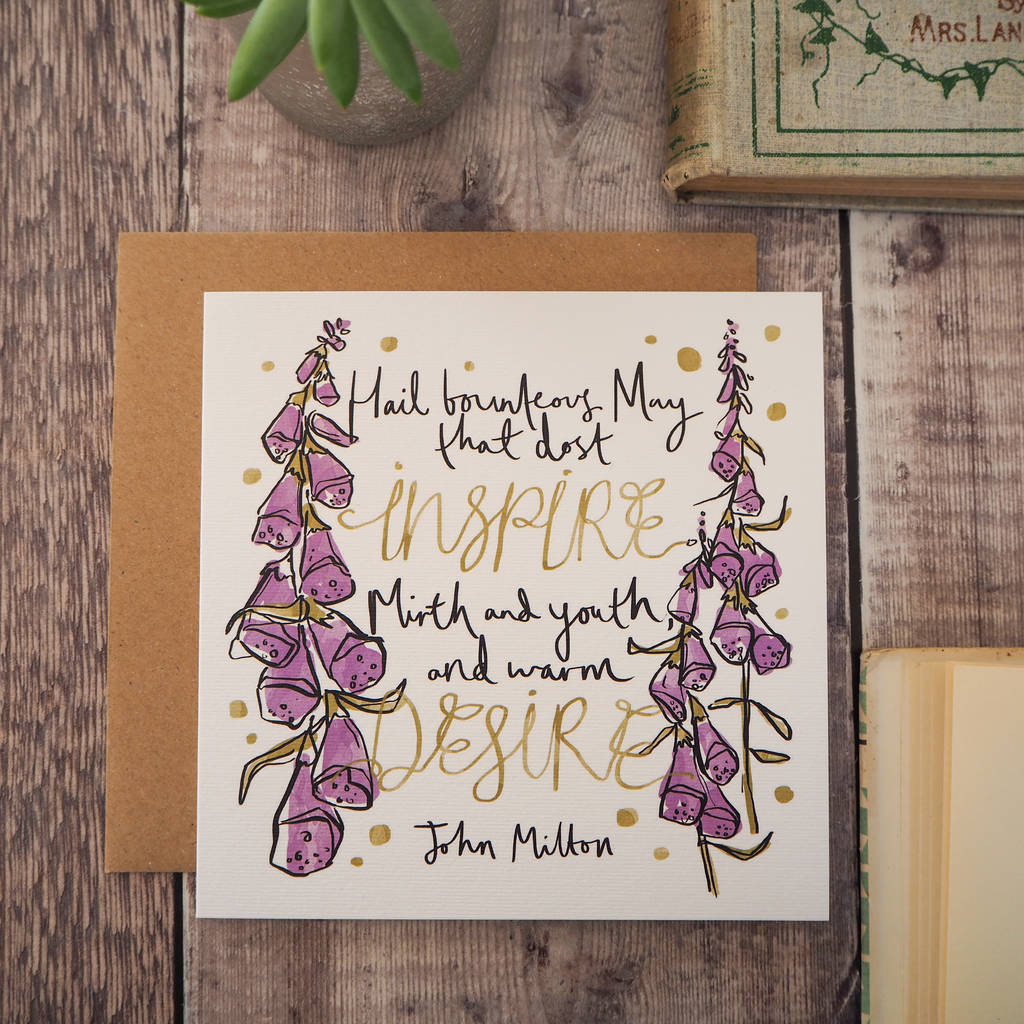 By
MRS. LAN
Hail bounteous May
that dost
INSPIRE
Mirth and youth,
and warm
DESIRE
John Milton